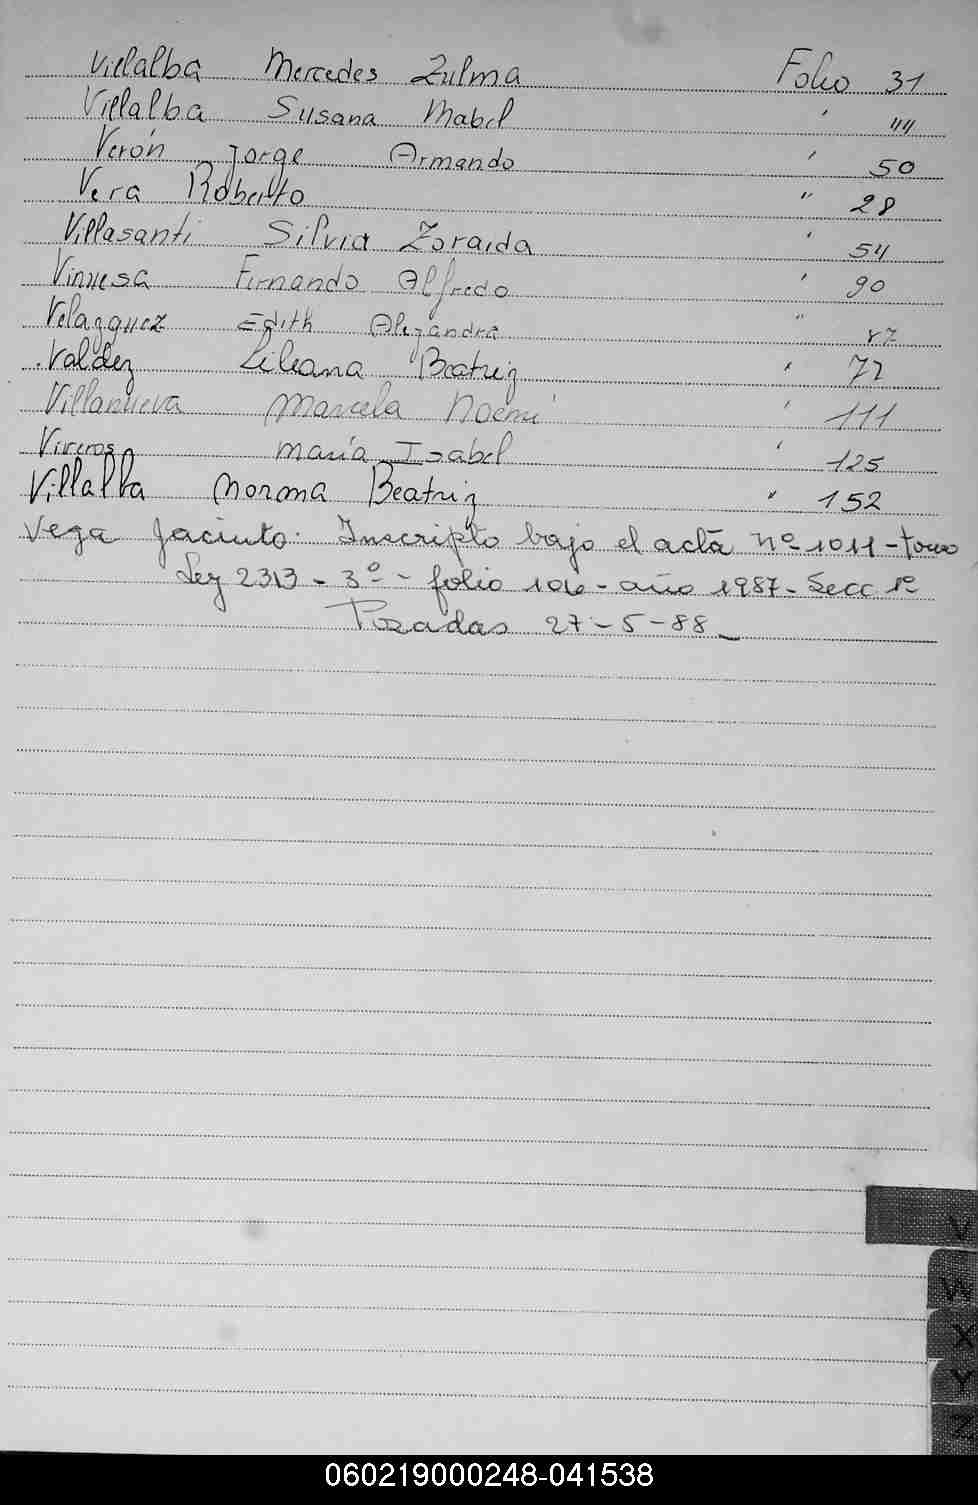 Villalba Mercedes Zulma Folio 31
Villalba Susana Mabel " 44
Verón Jorge Armando " 50
Vera Roberto " 28
Villasanti Silvia Zoraida " 54
Vinuesa Fernando Alfredo " 90
Velazquez Edith Alejandra "
Valdez Liliana Beatriz " 72
Villanueva Marcela Noemí " 111
Viveros María Isabel " 125
Villalba Norma Beatriz " 152
Vega Jacinto. Inscripto bajo el acta nº 1011 - tomo
Ley 2313 - 3º - folio - año 1987 - Secc 1º
Posadas 27-5-88
V
W
X
Y
Z
060219000248-041538